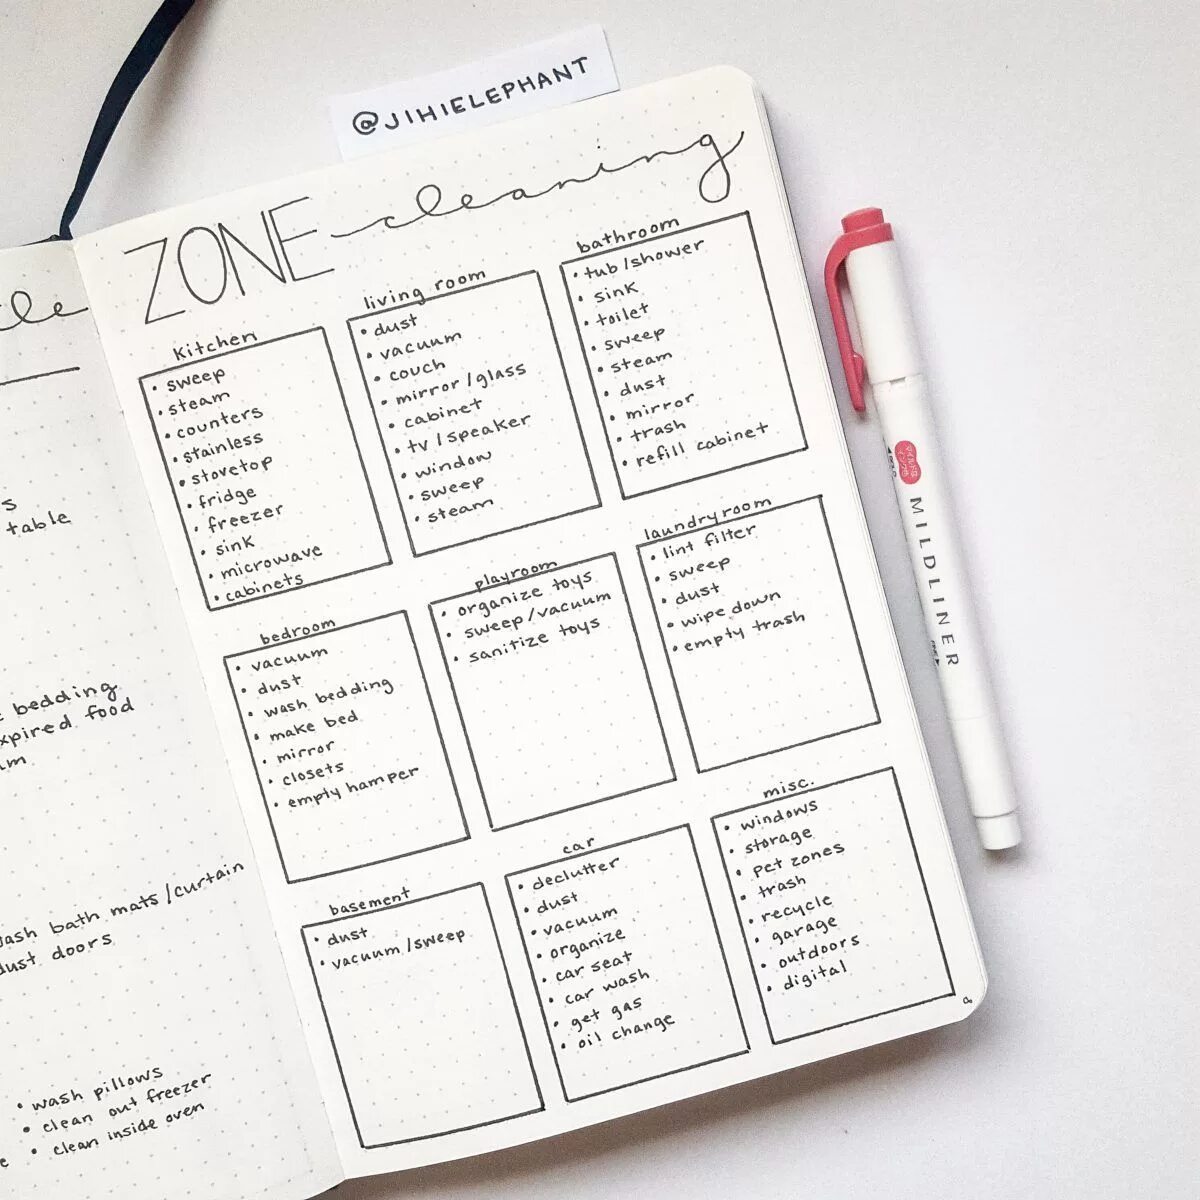 @JIHIELEPHANT
ZONE cleaning
kitchen
• sweep
• steam
• counters
• stainless
• stovetop
• fridge
• freezer
• sink
• microwave
• cabinets
living room
• dust
• vacuum
• couch
• mirror/glass
• cabinet
• tv/speaker
• window
• sweep
• steam
bathroom
• tub/shower
• sink
• toilet
• sweep
• steam
• dust
• mirror
• trash
• refill cabinet
bedroom
• vacuum
• dust
• wash bedding
• make bed
• mirror
• closets
• empty hamper
playroom
• organize toys
• sweep/vacuum
• sanitize toys
laundry room
• lint filter
• sweep
• dust
• wipe down
• empty trash
basement
• dust
• vacuum/sweep
car
• declutter
• dust
• vacuum
• organize
• car seat
• car wash
• get gas
• oil change
misc.
• windows
• storage
• pet zones
• trash
• recycle
• garage
• outdoors
• digital
table
bedding
food
bath mats/curtain
doors
• wash pillows
• clean out freezer
• clean inside oven
MILDLINER